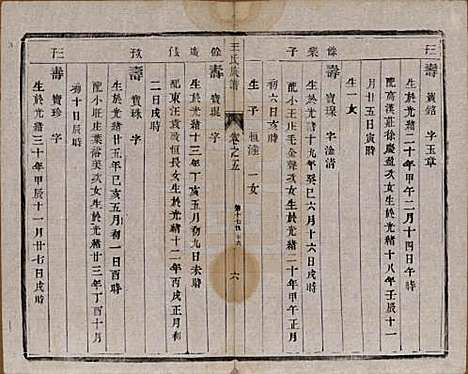 壬 壽 寶銘 字玉章
生於光緒二十年甲午二月十四日戌時
配高漢莊徐慶盈次女生於光緒十八年壬辰十一
月廿五日寅時
生一女
餘 壽 寶琛 字淦清
棠 生於光緒十九年癸巳六月十六日戌時
子 配小王庄毛金聲次女生於光緒二十年甲午正月
初六日亥時
生子 恒達 一女
王氏族譜 卷之五 六
餘 壽 寶琨 字
造 生於光緒十三年丁亥五月初九日未時
配東汪袁茂恒長女生於光緒十二年丙戌正月初
二日戌時
壽 寶珠 字
生於光緒廿五年己亥五月初一日酉時
配小莊庄葉裕 次女生於光緒廿三年丁酉十月
初十日辰時
壬 壽 寶珍 字
生於光緒三十年甲辰十一月廿七日戌時